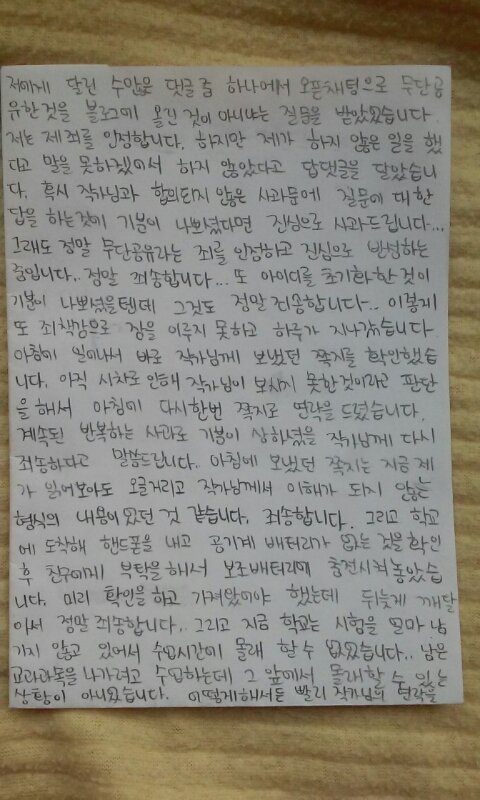 저에게 달린 수많은 댓글 중 하나에서 오픈채팅으로 무단공
유한것을 블로그에 올린 것이 아니냐는 질문을 받았었습니다.
저는 제 죄를 인정합니다. 하지만 제가 하지 않은 일을 했
다고 말을 못하겠어서 하지 않았다고 답댓글을 달았습니
다. 혹시 작가님과 합의되지 않은 사과문에 질문에 대한
답을 하는것에 기분이 나쁘셨다면 진심으로 사과드립니다...
그래도 정말 무단공유라는 죄를 인정하고 진심으로 반성하는
중입니다. 정말 죄송합니다... 또 아이디를 초기화한 것이
기분이 나쁘셨을텐데 그것도 정말 죄송합니다..
또 죄책감으로 잠을 이루지 못하고 하루가 지나갔습니다
아침에 일어나서 바로 작가님께 보냈던 쪽지를 확인했습
니다. 아직 시차로 인해 작가님이 보시지 못한것이라고 판단
을 해서 아침에 다시한번 쪽지로 연락을 드렸습니다.
계속된 반복하는 사과로 기분이 상하셨을 작가님께 다시
죄송하다고 말씀드립니다. 아침에 보냈던 쪽지는 지금 제
가 읽어보아도 오글거리고 작가님께서 이해가 되지 않는
형식의 내용이었던 것 같습니다. 죄송합니다. 그리고 학교
에 도착해 핸드폰을 내고 공기계 배터리가 없는 것을 확인
후 친구에게 부탁을 해서 보조배터리에 충전시켜놓았습
니다. 미리 확인을 하고 가져왔어야 했는데 뒤늦게 깨달
아서 정말 죄송합니다.. 그리고 지금 학교는 시험을 얼마 남
기지 않고 있어서 수업시간에 몰래 할 수 없었습니다.. 남은
교과과목을 나가려고 수업하는데 그 앞에서 몰래할 수 있는
상황이 아니었습니다. 어떻게해서든 빨리 작가님의 연락을